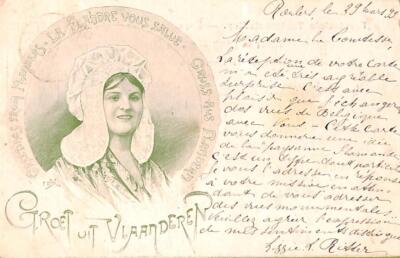 GREETINGS FROM FLANDERS · LA FLANDRE VOUS SALUE · GRUSS AUS FLANDERN
GROET UIT VLAANDEREN
Roulers, le 29 Mars 99
Madame la Comtesse,
La réception de votre carte
m'a été très agréable
surprise. C'est avec
plaisir que j'échangerai
des vues de Belgique
avec vous. Cette carte
vous donnera une idée
de la paysanne flamande
C'est un type dont
je vous l'adresse en réponse
à votre missive en atten
dant de vous adresser
des vues monumentales.
Veuillez agréer l'expression
de mes sentiments distingués
Lizzie L. Ritter